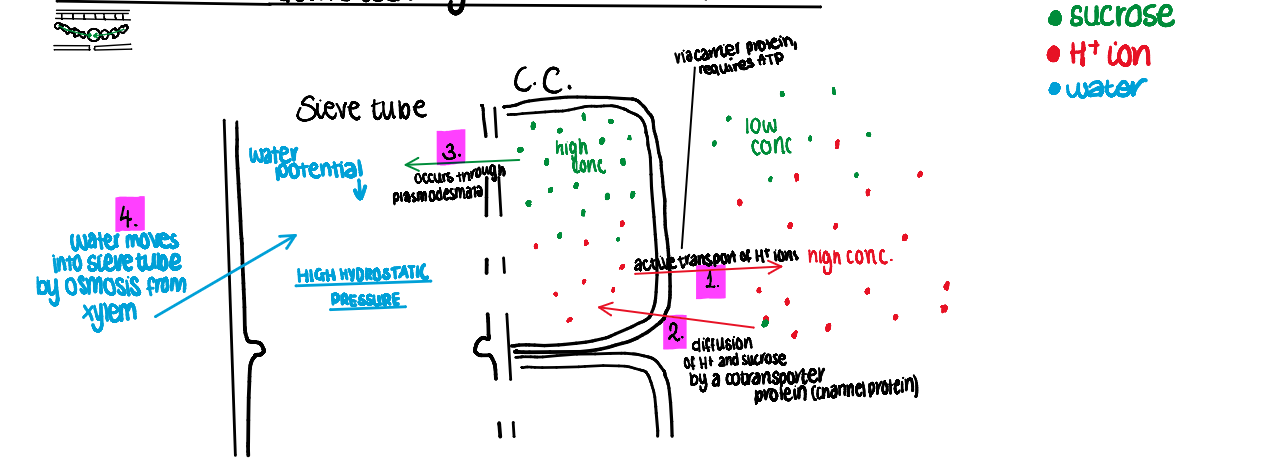 sucrose
H⁺ ion
water
via carrier protein,
requires ATP
C.C.
Sieve tube
low
conc
3.
high
conc
water
potential
occurs through
plasmodesmata
4.
water moves
into sieve tube
by osmosis from
xylem
active transport of H⁺ ions
high conc.
HIGH HYDROSTATIC
PRESSURE
1.
2.
diffusion
of H⁺ and sucrose
by a cotransporter
protein (channel protein)